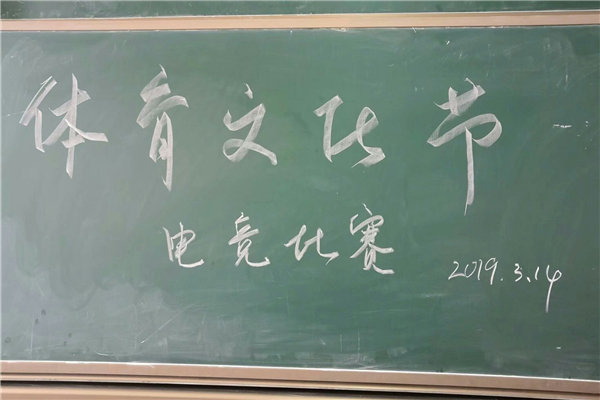 体育文化节
电竞比赛
2019.3.14